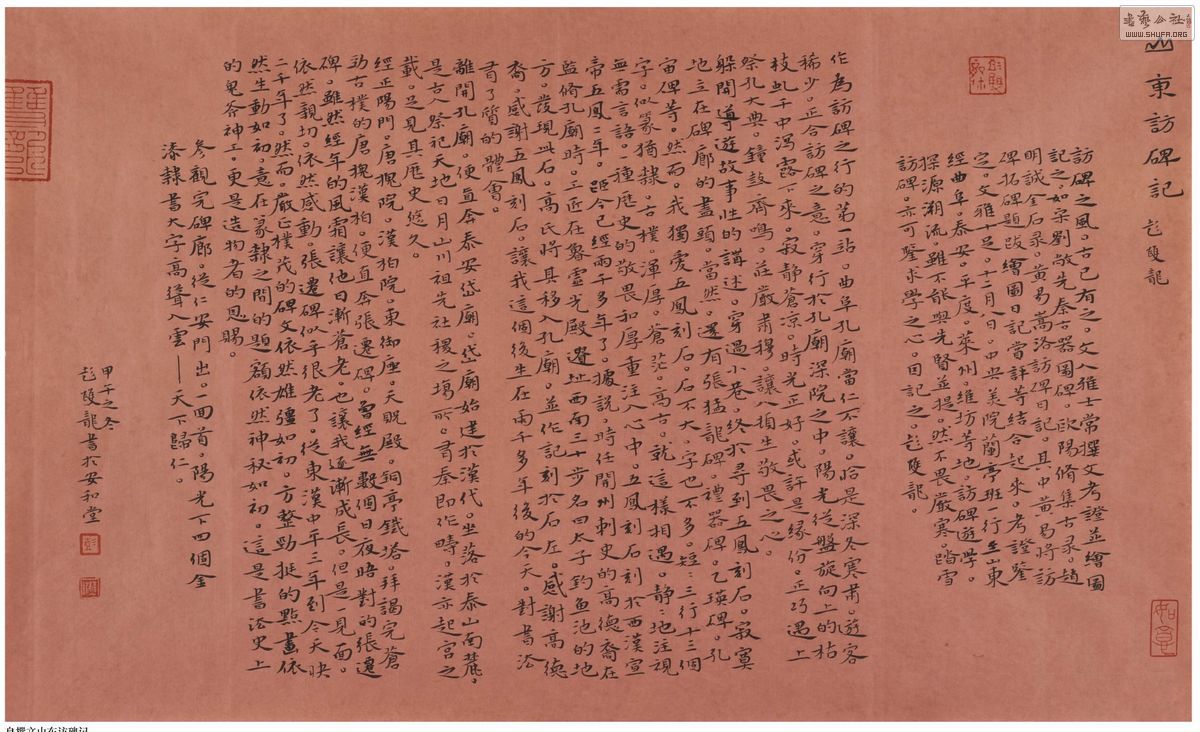 山東訪碑記 彭雙龍
訪碑之風。古已有之。文人雅士常撰文考證並繪圖
記之。如梁劉敬先秦古器圖碑。歐陽脩集古录。趙
明誠金石录。黄易嵩洛訪碑日記。其中黄易將訪
碑拓碑題跋繪圖日記當詳等结合起来。考證鑒
定。文雅十足。十二月八日。中央美院蘭亭班一行至山東
經曲阜。泰安。平度。萊州。維坊等地。訪碑遊學。
探源溯流。雖不能與先賢並提。然不畏嚴寒。踏雪
訪碑。亦可鑒求學之心。因記之。彭雙龍。
作為訪碑之行的第一站。曲阜孔廟當仁不讓。恰是深冬寒肃。遊客
稀少。正合訪碑之意。穿行於孔廟深院之中。陽光從盤旋向上的枯
枝虬干中瀉露下來。寂静蒼凉。時光正好。或許是缘份。正巧遇上
祭孔大典。鐘鼓齊鳴。莊嚴肃穆。讓人頓生敬畏之心。
躲開導遊故事性的講述。穿過小巷。终於寻到五鳳刻石。寂寞
地立在碑廊的盡頭。當然。還有張猛龍碑。禮器碑。乙瑛碑。孔
宙碑等。然而。我獨爱五鳳刻石。石不大。字也不多。短三行十三個
字。似篆猶隸。古樸。渾厚。蒼茫。高古。就這樣相遇。静地注視
無需言語。一種歷史的敬畏和厚重注入心中。五鳳刻石刻於西漢宣
帝五鳳二年。距今已經兩千多年了。據說。時任開州刺史的高德裔在
監脩孔廟時。工匠在魯靈光殿遺址西南三十步名曰太子钓鱼池的地
方。发現此石。高氏將其移入孔廟。並作記刻於石左。感謝高德
裔。感謝五鳳刻石。讓我這個後生在兩千多年後的今天。對書法
有了質的體會。
離開孔廟。便直奔泰安岱廟。岱廟始建於漢代。坐落於泰山南麓。
是古人祭祀天地日月山川祖先社稷之場所。有秦即作畤。漢亦起宫之
載。足見其歷史悠久。
經正陽門。唐槐院。漢柏院。東御座。天貺殿。銅亭鐵塔。拜謁完蒼
訪古樸的唐槐漢柏。便直奔張遷碑。曾經無數個日夜晤對的張遷
碑。雖然經年的風霜讓他日漸蒼老。也讓我逐漸成長。但是一見面。
依然親切。依然感動。張遷碑似乎很老了。從東漢中平三年到今天快
二千年了。然而。嚴正樸茂的碑文依然雄彊如初。方整勁挺的點畫依
然生動如初。意在篆隸之間的題額依然神秘如初。這是書法史上
的鬼斧神工。更是造物者的恩賜。
參觀完碑廊。從仁安門出。一回首。陽光下四個金
漆隸書大字高聳入雲——天下歸仁。
甲午之冬
彭雙龍書於安和堂
如意
書藝公社
WWW.SHUFA.ORG
自撰文山东访碑记